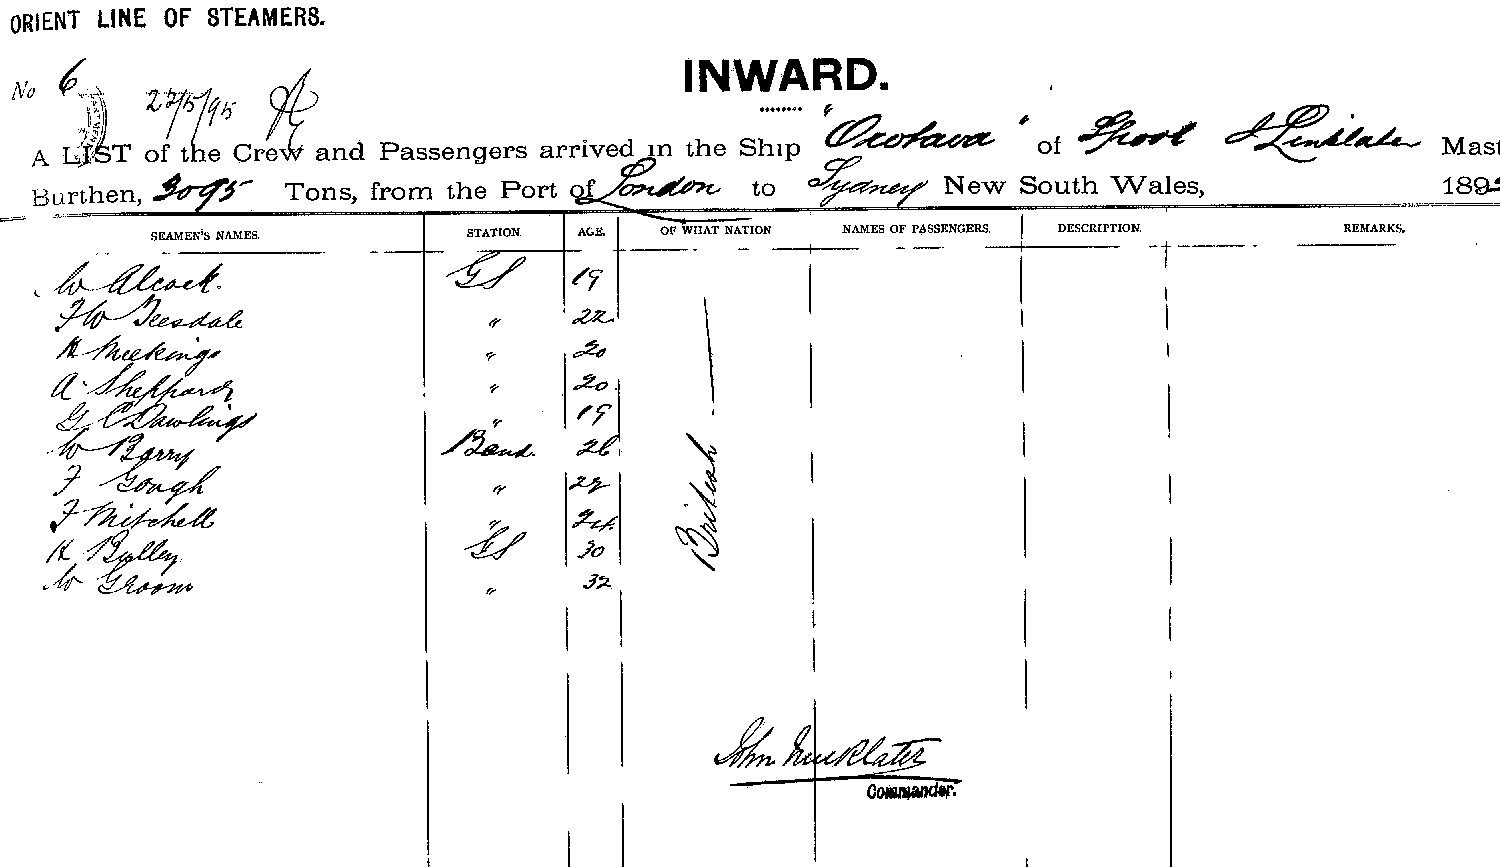 ORIENT LINE OF STEAMERS.
No 6
INWARD.
22/5/95
A LIST of the Crew and Passengers arrived in the Ship "Orotava" of Lpool J Linklater Mast
Burthen, 3095 Tons, from the Port of London to Sydney New South Wales, 1895
SEAMEN'S NAMES. STATION. AGE. OF WHAT NATION NAMES OF PASSENGERS. DESCRIPTION. REMARKS.
W Alcock. GS 19
F W Teesdale " 22
H Meekings " 20
A Sheppard " 20
G C Dawlings " 19
W Barry Band. 26
F Gough " 22
F Mitchell " 24
H Bulley GS 30
W Groom " 32
British
John Linklater
Commander.